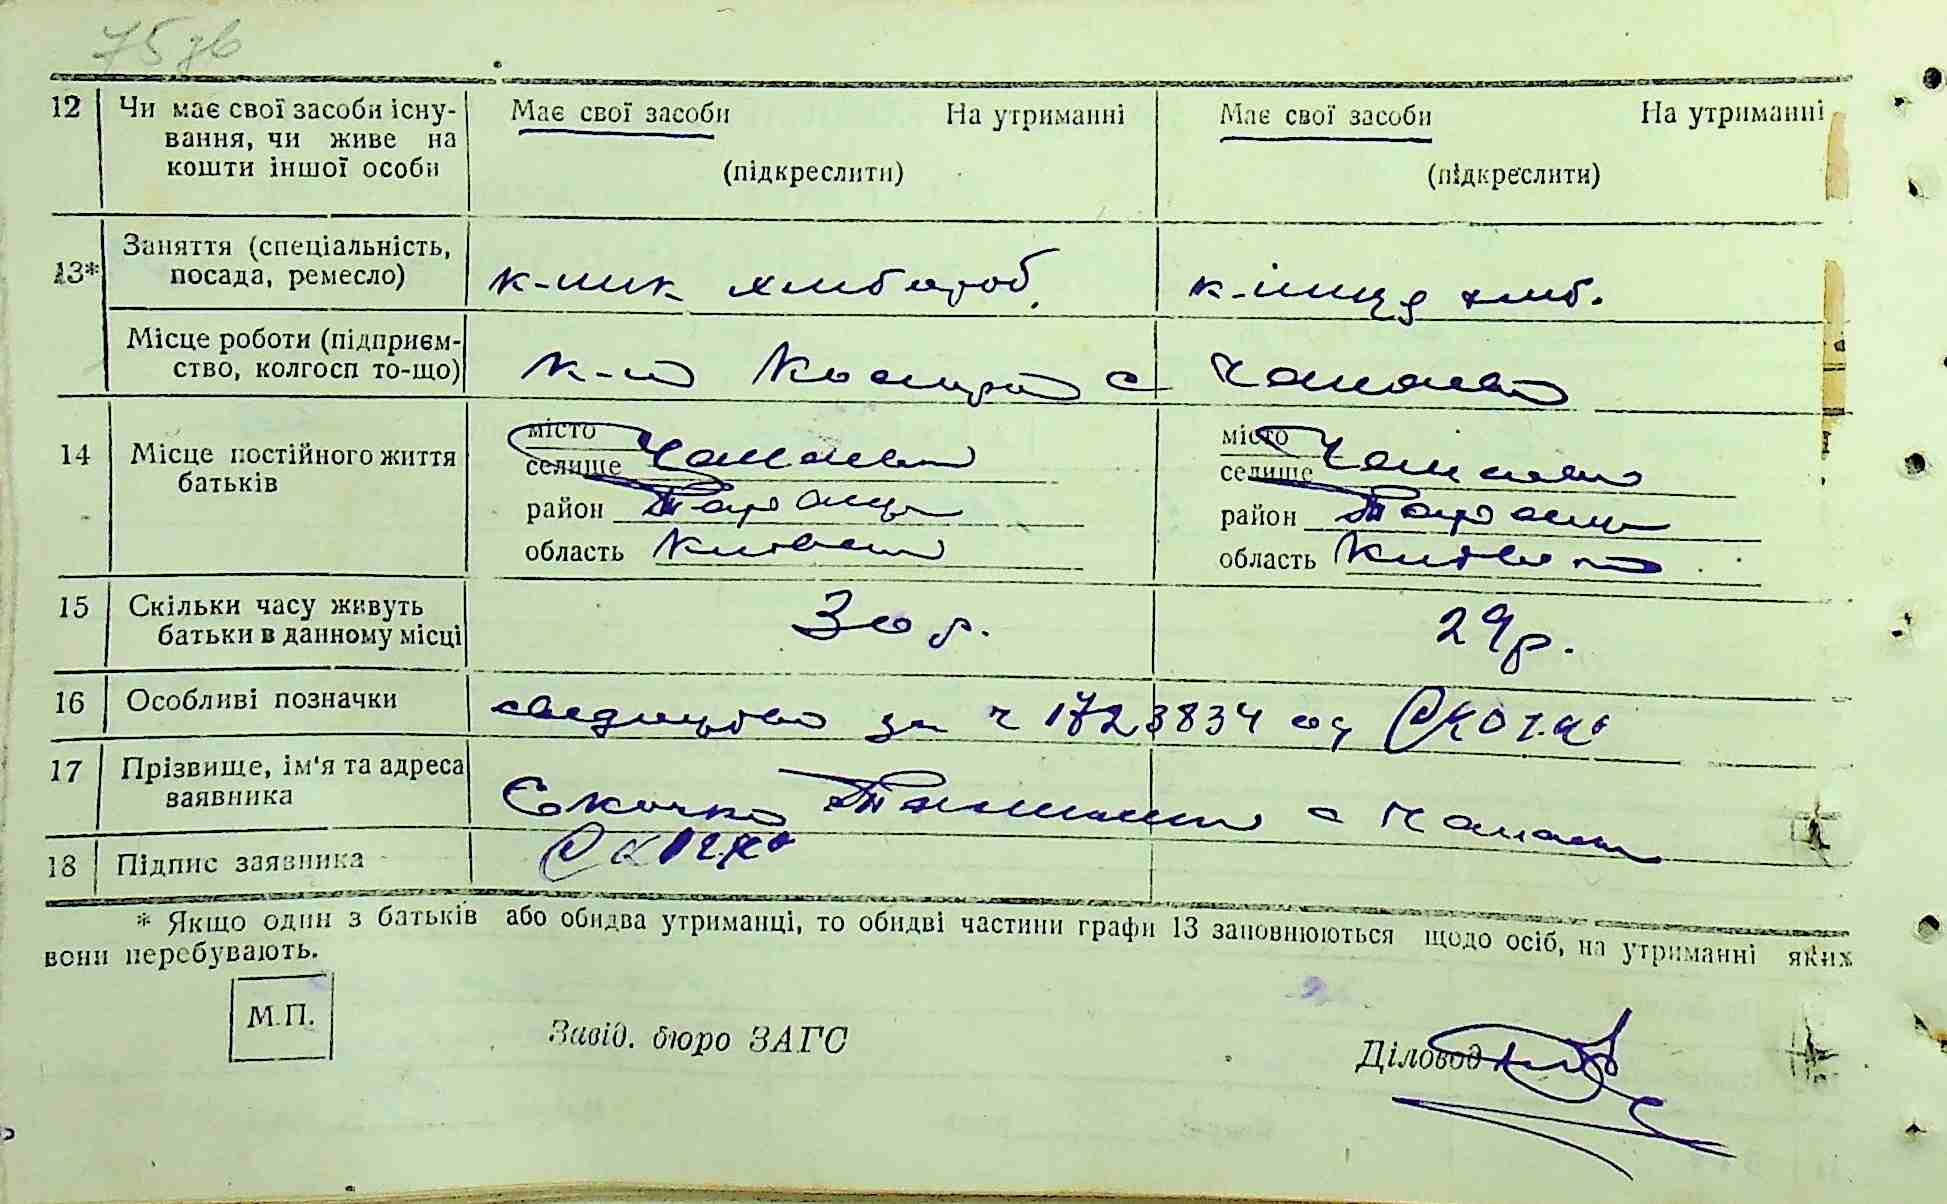 75 зв
12 Чи має свої засоби існу- Має свої засоби На утриманні Має свої засоби На утриманні
вання, чи живе на
кошти іншої особи (підкреслити) (підкреслити)
13* Заняття (спеціальність,
посада, ремесло) к-ник хлібороб к-ниця хліб.
Місце роботи (підприєм-
ство, колгосп то-що) к-п с
14 Місце постійного життя
батьків
місто місто
селище селище
район Таращан район Таращан
область Київськ область Київськ
15 Скільки часу живуть 30 р. 29 р.
батьки в данному місці
16 Особливі позначки свідоцтво за ч 1723834 од Скочко
17 Прізвище, ім'я та адреса
заявника Скочко с
18 Підпис заявника Скочко
* Якщо один з батьків або обидва утриманці, то обидві частини графи 13 заповнюються щодо осіб, на утриманні яких
вони перебувають.
М.П.
Завід. бюро ЗАГС Діловод